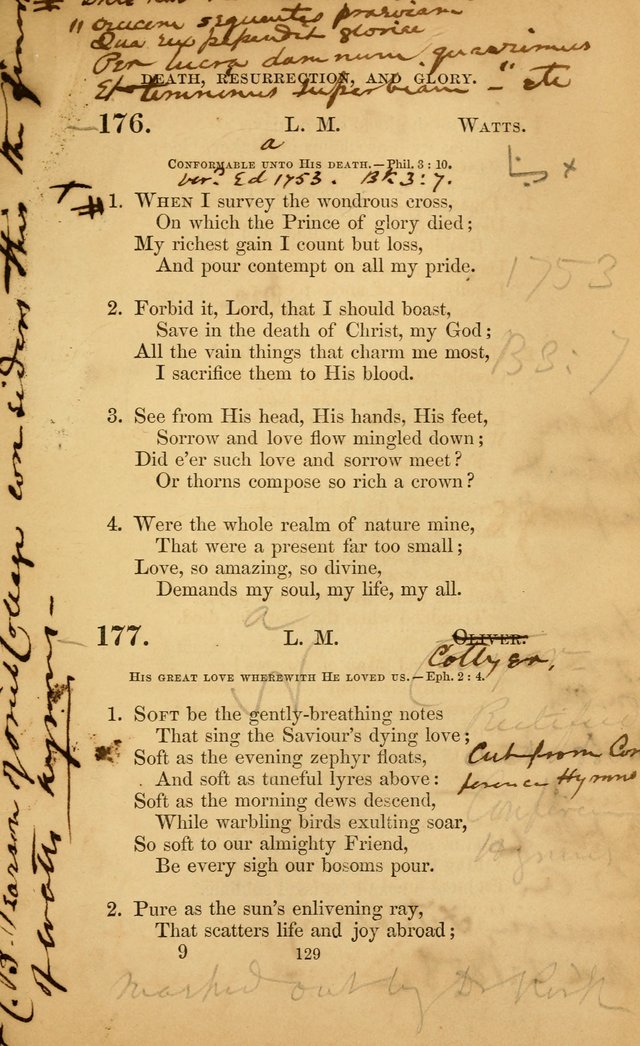 "Crucem sequentes praeviam
Qua rex pependit gloriae
Per lucra damnum quaerimus
Et temnimus superbiam - " etc
DEATH, RESURRECTION, AND GLORY.
176. L. M. WATTS.
a
CONFORMABLE UNTO HIS DEATH.—Phil. 3 : 10.
ver. Ed 1753. Bk 3 : 7.
x
# 1. WHEN I survey the wondrous cross,
On which the Prince of glory died;
My richest gain I count but loss,
And pour contempt on all my pride.
1753
B 3 : 7
2. Forbid it, Lord, that I should boast,
Save in the death of Christ, my God;
All the vain things that charm me most,
I sacrifice them to His blood.
3. See from His head, His hands, His feet,
Sorrow and love flow mingled down;
Did e'er such love and sorrow meet?
Or thorns compose so rich a crown?
4. Were the whole realm of nature mine,
That were a present far too small;
Love, so amazing, so divine,
Demands my soul, my life, my all.
a
177. L. M. OLIVER.
Collyer.
HIS GREAT LOVE WHEREWITH HE LOVED US.—Eph. 2 : 4.
1. SOFT be the gently-breathing notes
That sing the Saviour's dying love;
Soft as the evening zephyr floats,
And soft as tuneful lyres above:
Soft as the morning dews descend,
While warbling birds exulting soar,
So soft to our almighty Friend,
Be every sigh our bosoms pour.
Cut from Con
ference Hymns
Conference
Hymns
2. Pure as the sun's enlivening ray,
That scatters life and joy abroad;
9 129
marked out by Dr Kirk
C. B. Pearson of Oriel College considers this the finest
of Watts hymns -